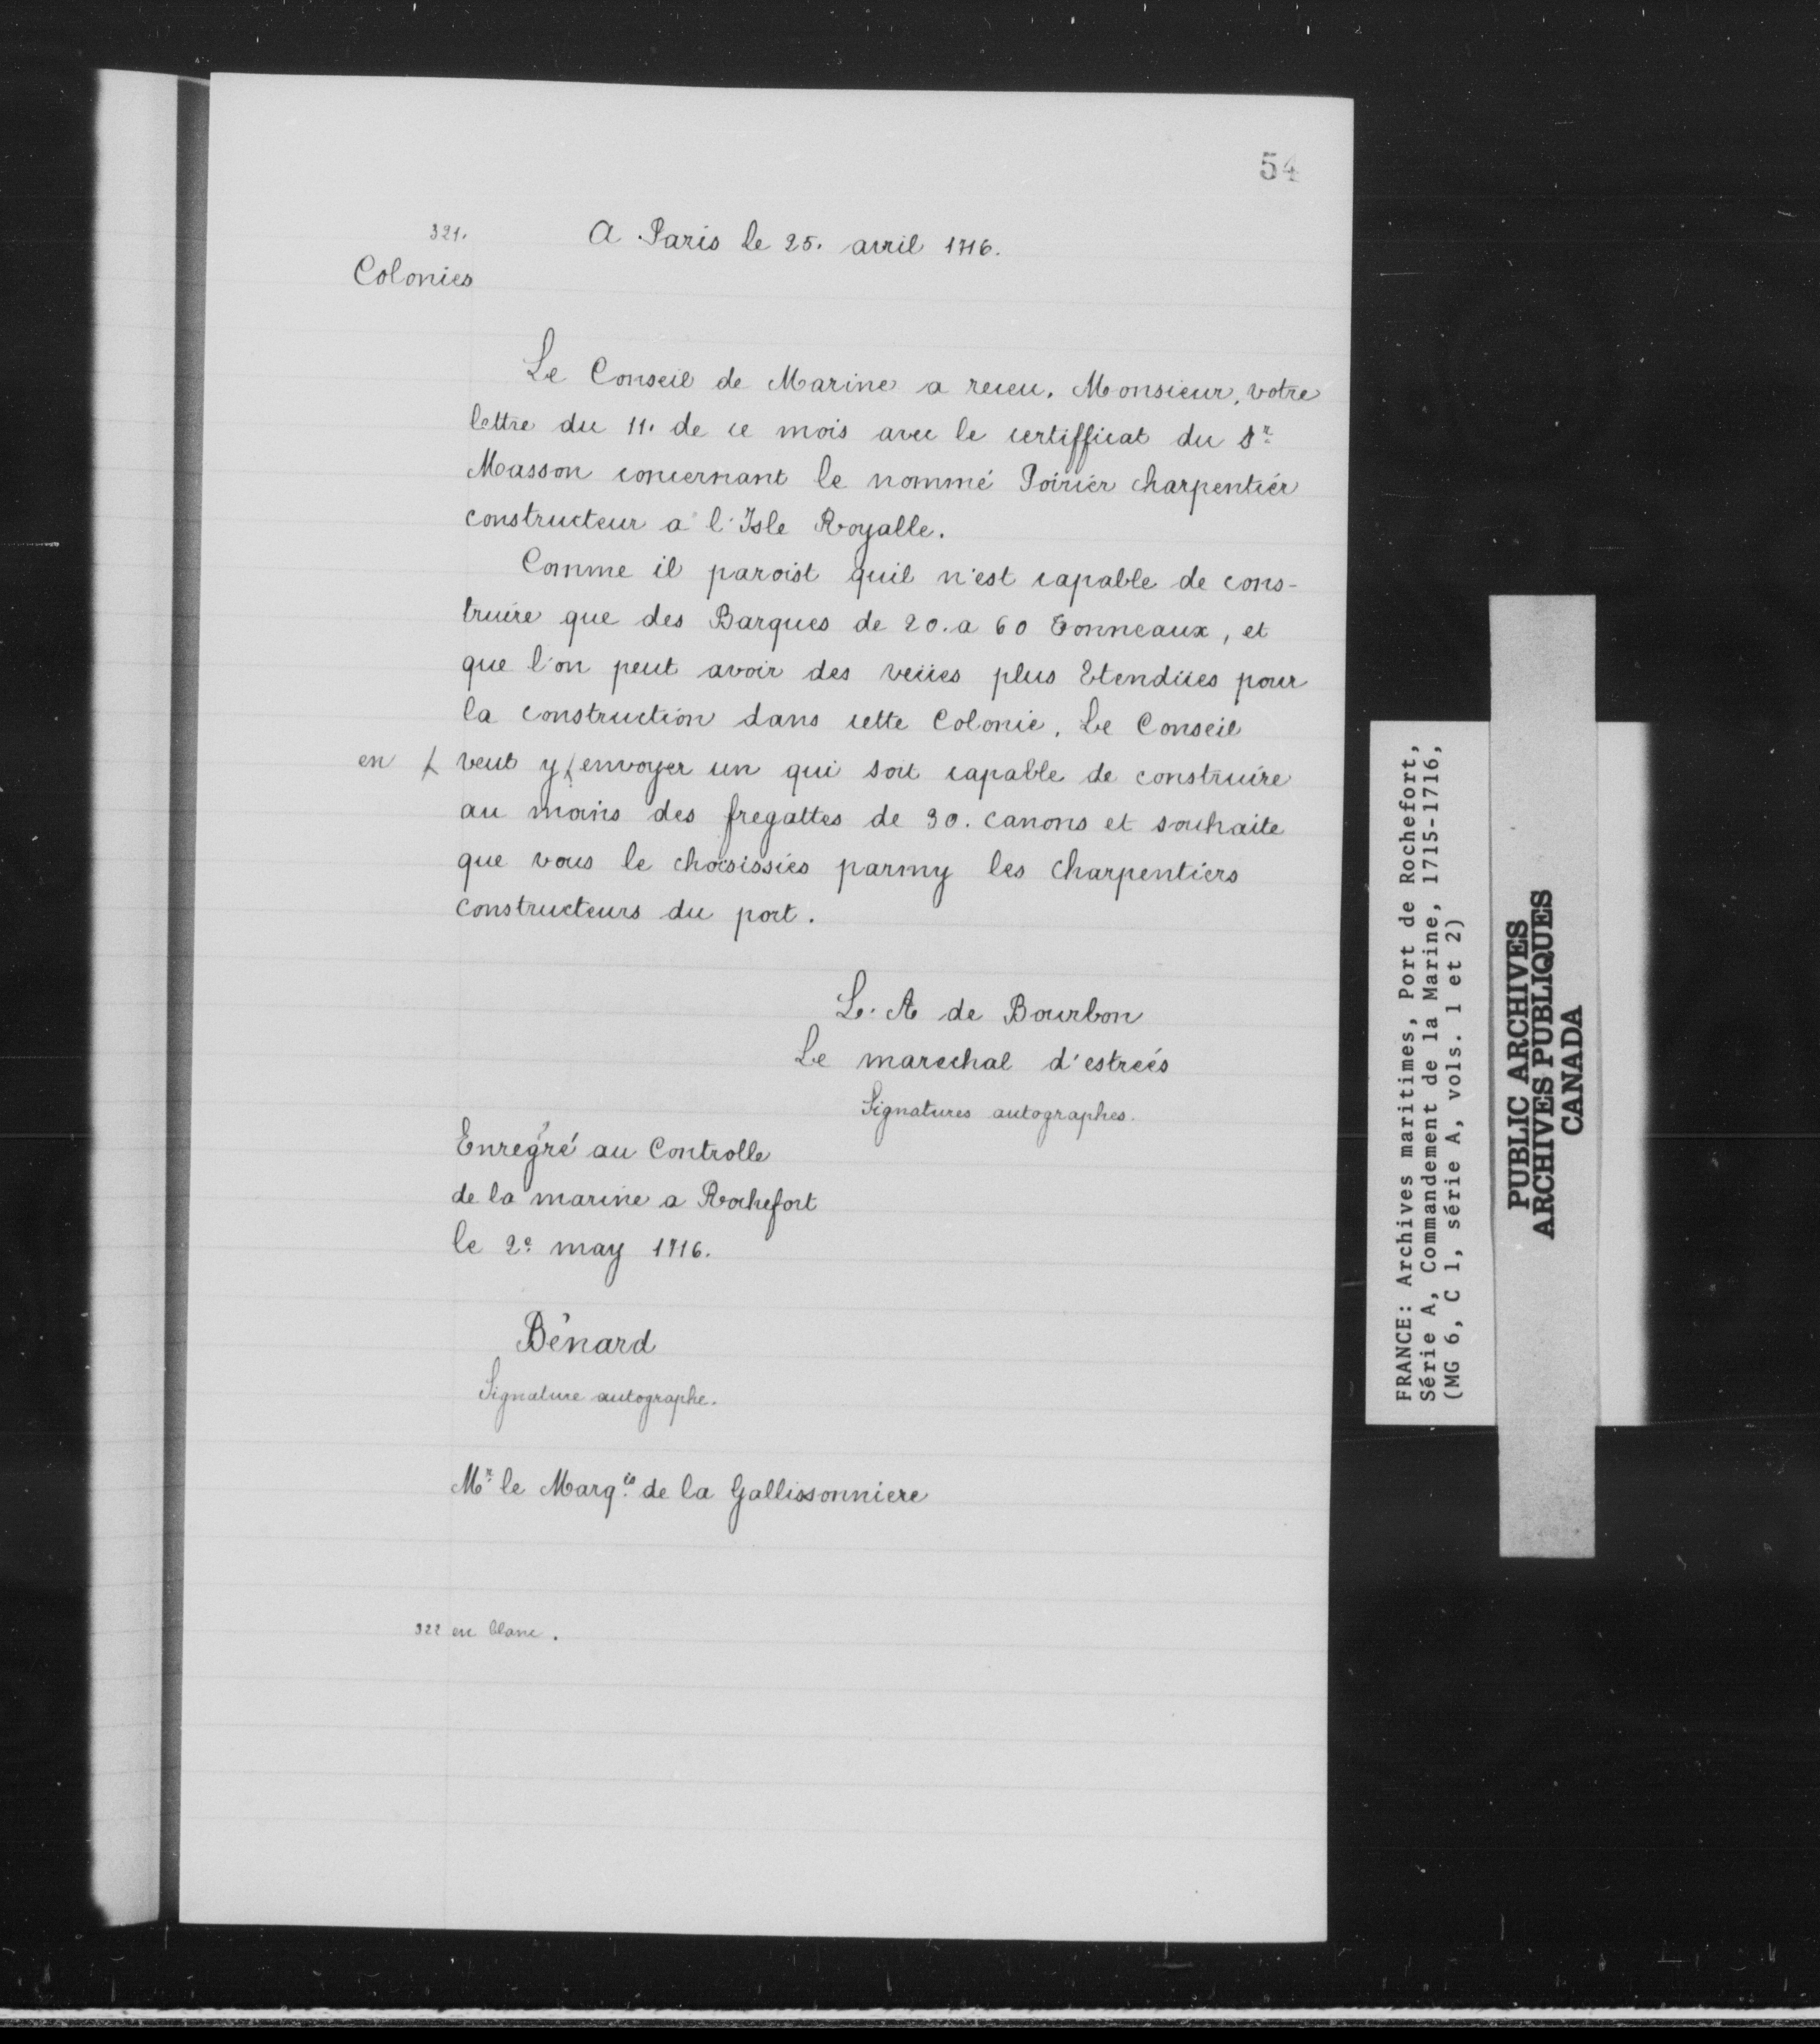 54
321.
A Paris le 25. avril 1716.
Colonies
Le Conseil de Marine a receu. Monsieur, votre
lettre du 11. de ce mois avec le certifficat du Sr.
Masson concernant le nommé Poiriér charpentiér
constructeur a l'Isle Royalle.
Comme il paroist quil n'est capable de cons-
truire que des Barques de 20. a 60 Tonneaux, et
que l'on peut avoir des veües plus Etendües pour
la construction dans cette Colonie. Le Conseil
en veut y envoyer un qui soit capable de construire
au moins des fregattes de 30. canons et souhaite
que vous le choisissiés parmy les charpentiérs
constructeurs du port.
L. A de Bourbon
Le marechal d'estreés
Signatures autographes.
Enregré au Controlle
de la marine a Rochefort
le 2e may 1716.
Bénard
Signature autographe.
Mr. le Marqis de la Gallissonniere
322 en blanc.
FRANCE: Archives maritimes, Port de Rochefort,
Série A, Commandement de la Marine, 1715-1716,
(MG 6, C 1, série A, vols. 1 et 2)
PUBLIC ARCHIVES
ARCHIVES PUBLIQUES
CANADA